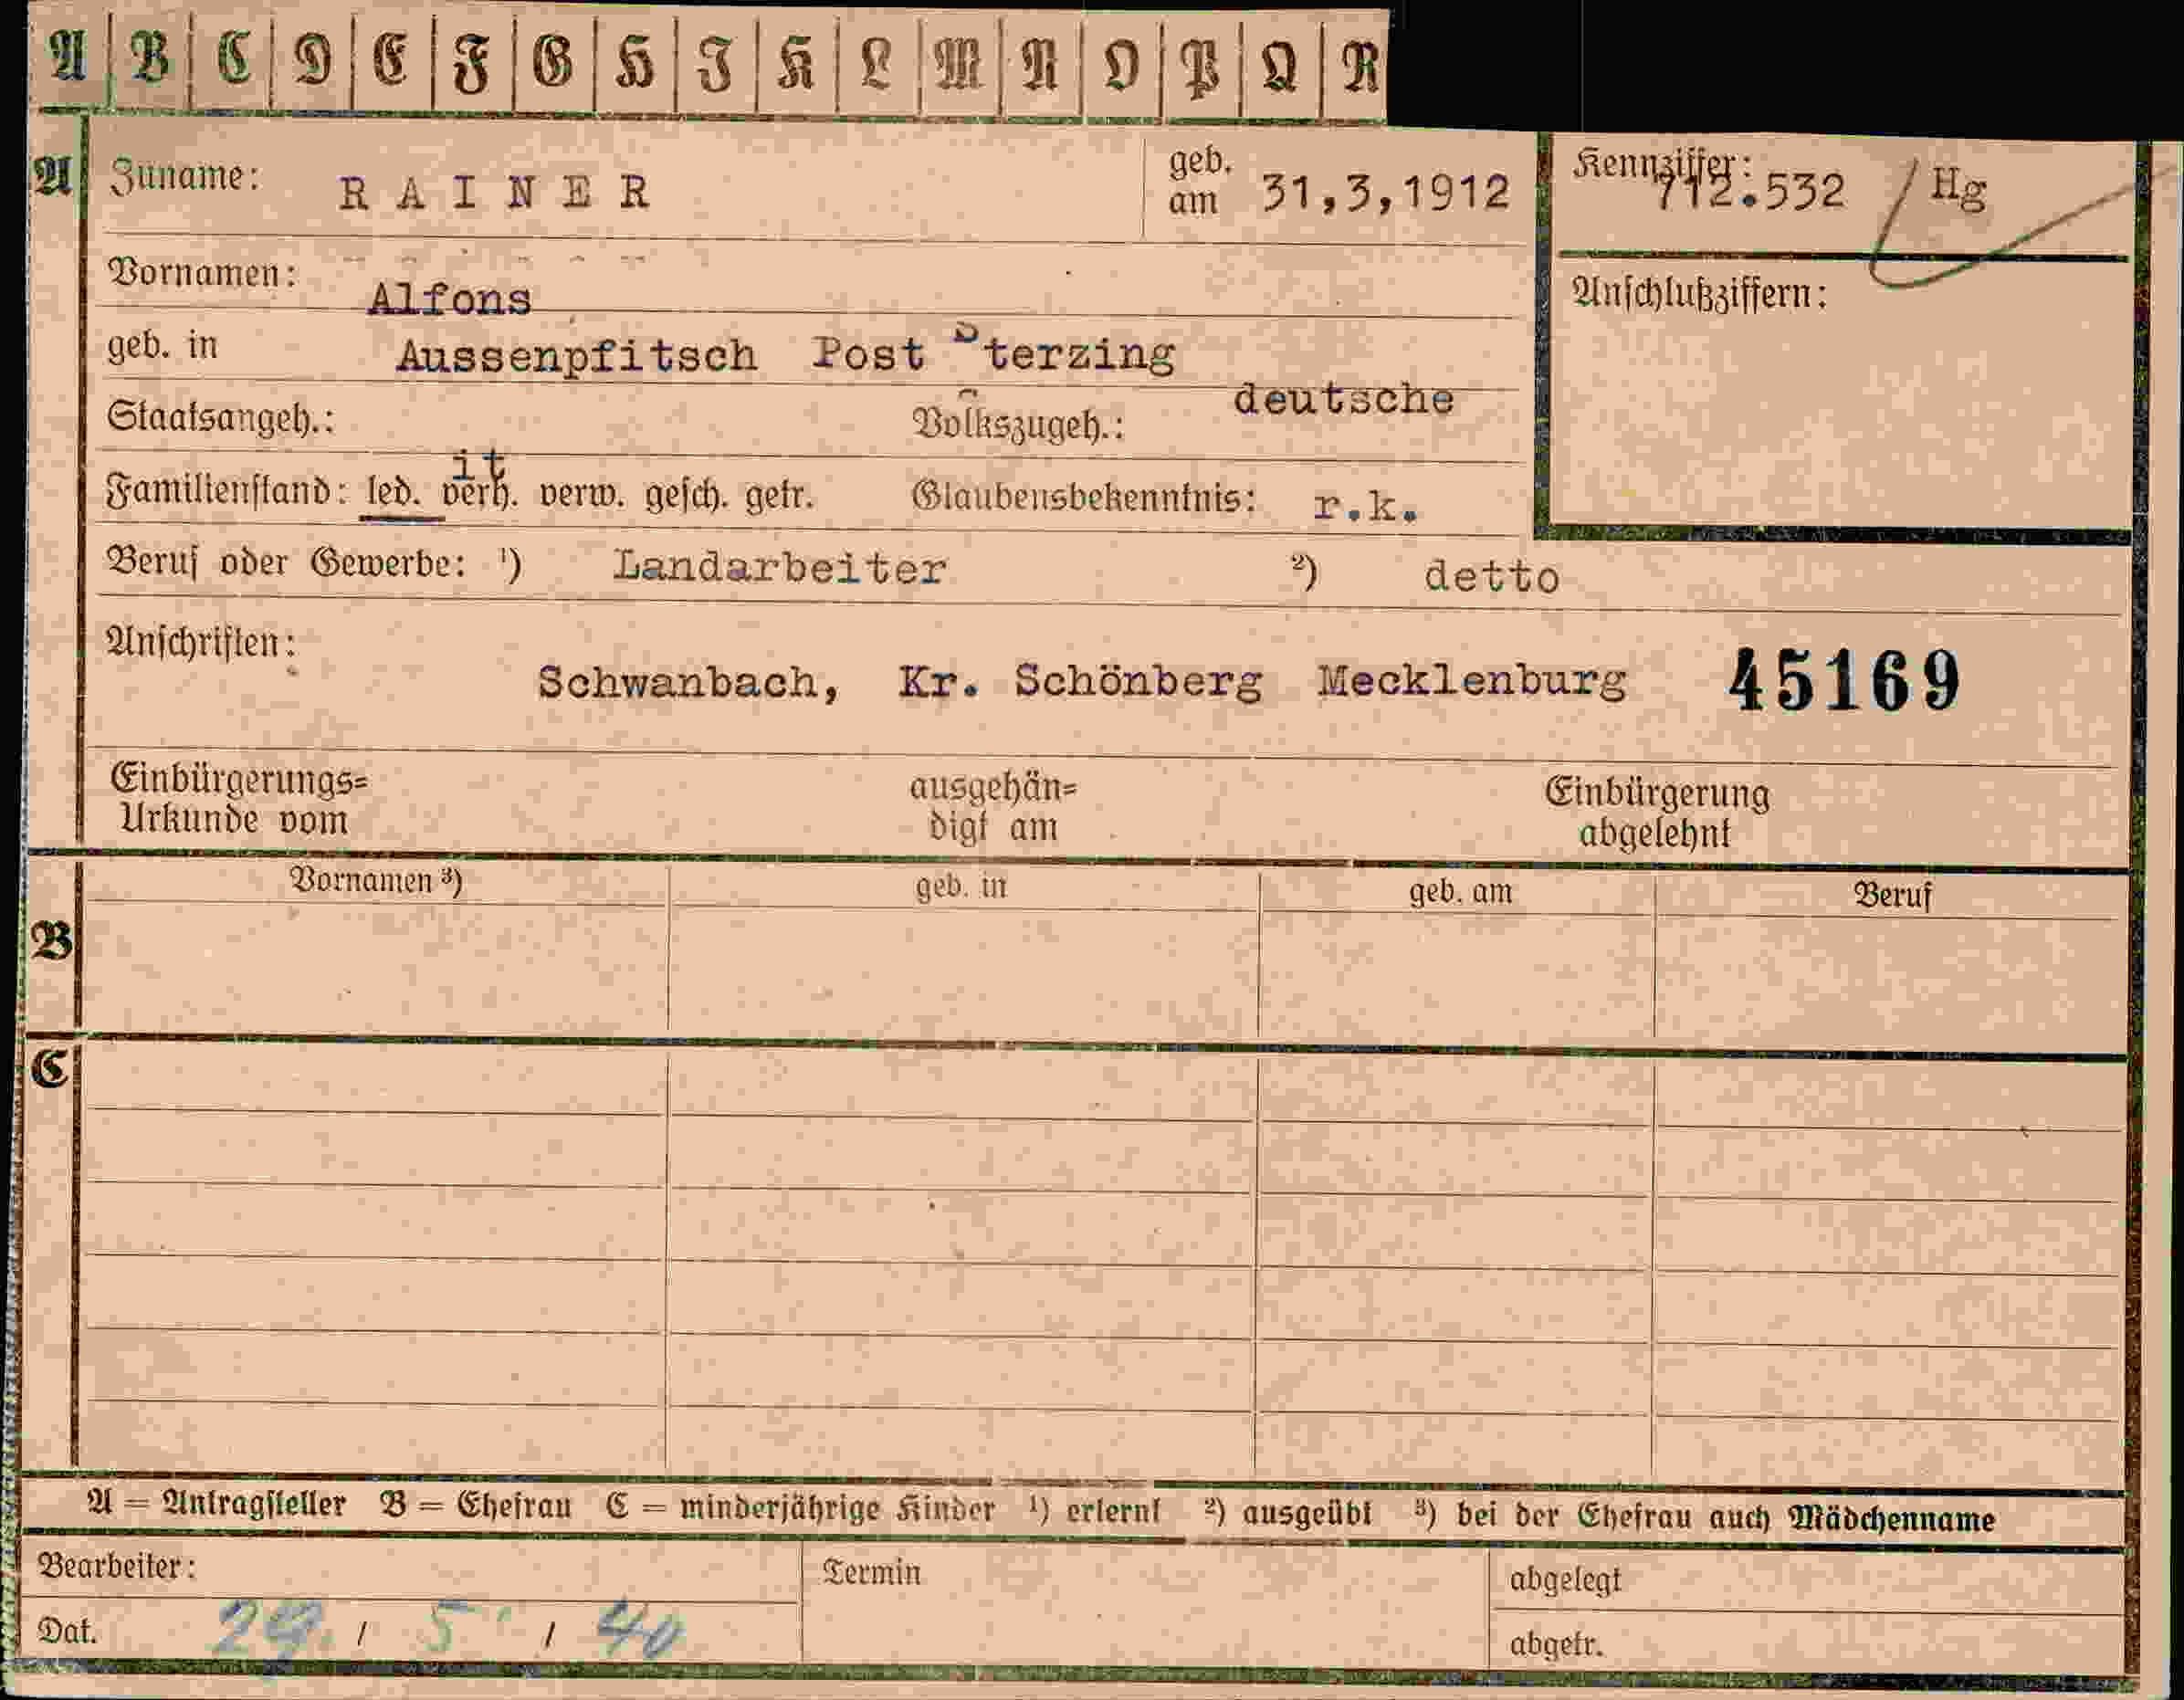 A B C D E F G H I K L M N O P Q R
A Zuname: RAINER geb. am 31,3,1912 Kennziffer: 712.532 / Hg
Vornamen: Alfons Anschlußziffern:
geb. in Aussenpfitsch Post Sterzing
Staatsangeh.: it Volkszugeh.: deutsche
Familienstand: led. verh. verw. gesch. getr. Glaubensbekenntnis: r.k.
Beruf oder Gewerbe: ¹) Landarbeiter ²) detto
Anschriften: Schwanbach, Kr. Schönberg Mecklenburg 45169
Einbürgerungs= ausgehän= Einbürgerung
Urkunde vom digt am abgelehnt
B Vornamen ³) geb. in geb. am Beruf
C
A = Antragsteller B = Ehefrau C = minderjährige Kinder ¹) erlernt ²) ausgeübt ³) bei der Ehefrau auch Mädchenname
Bearbeiter: Termin abgelegt
Dat. 29 / 5 / 40 abgetr.